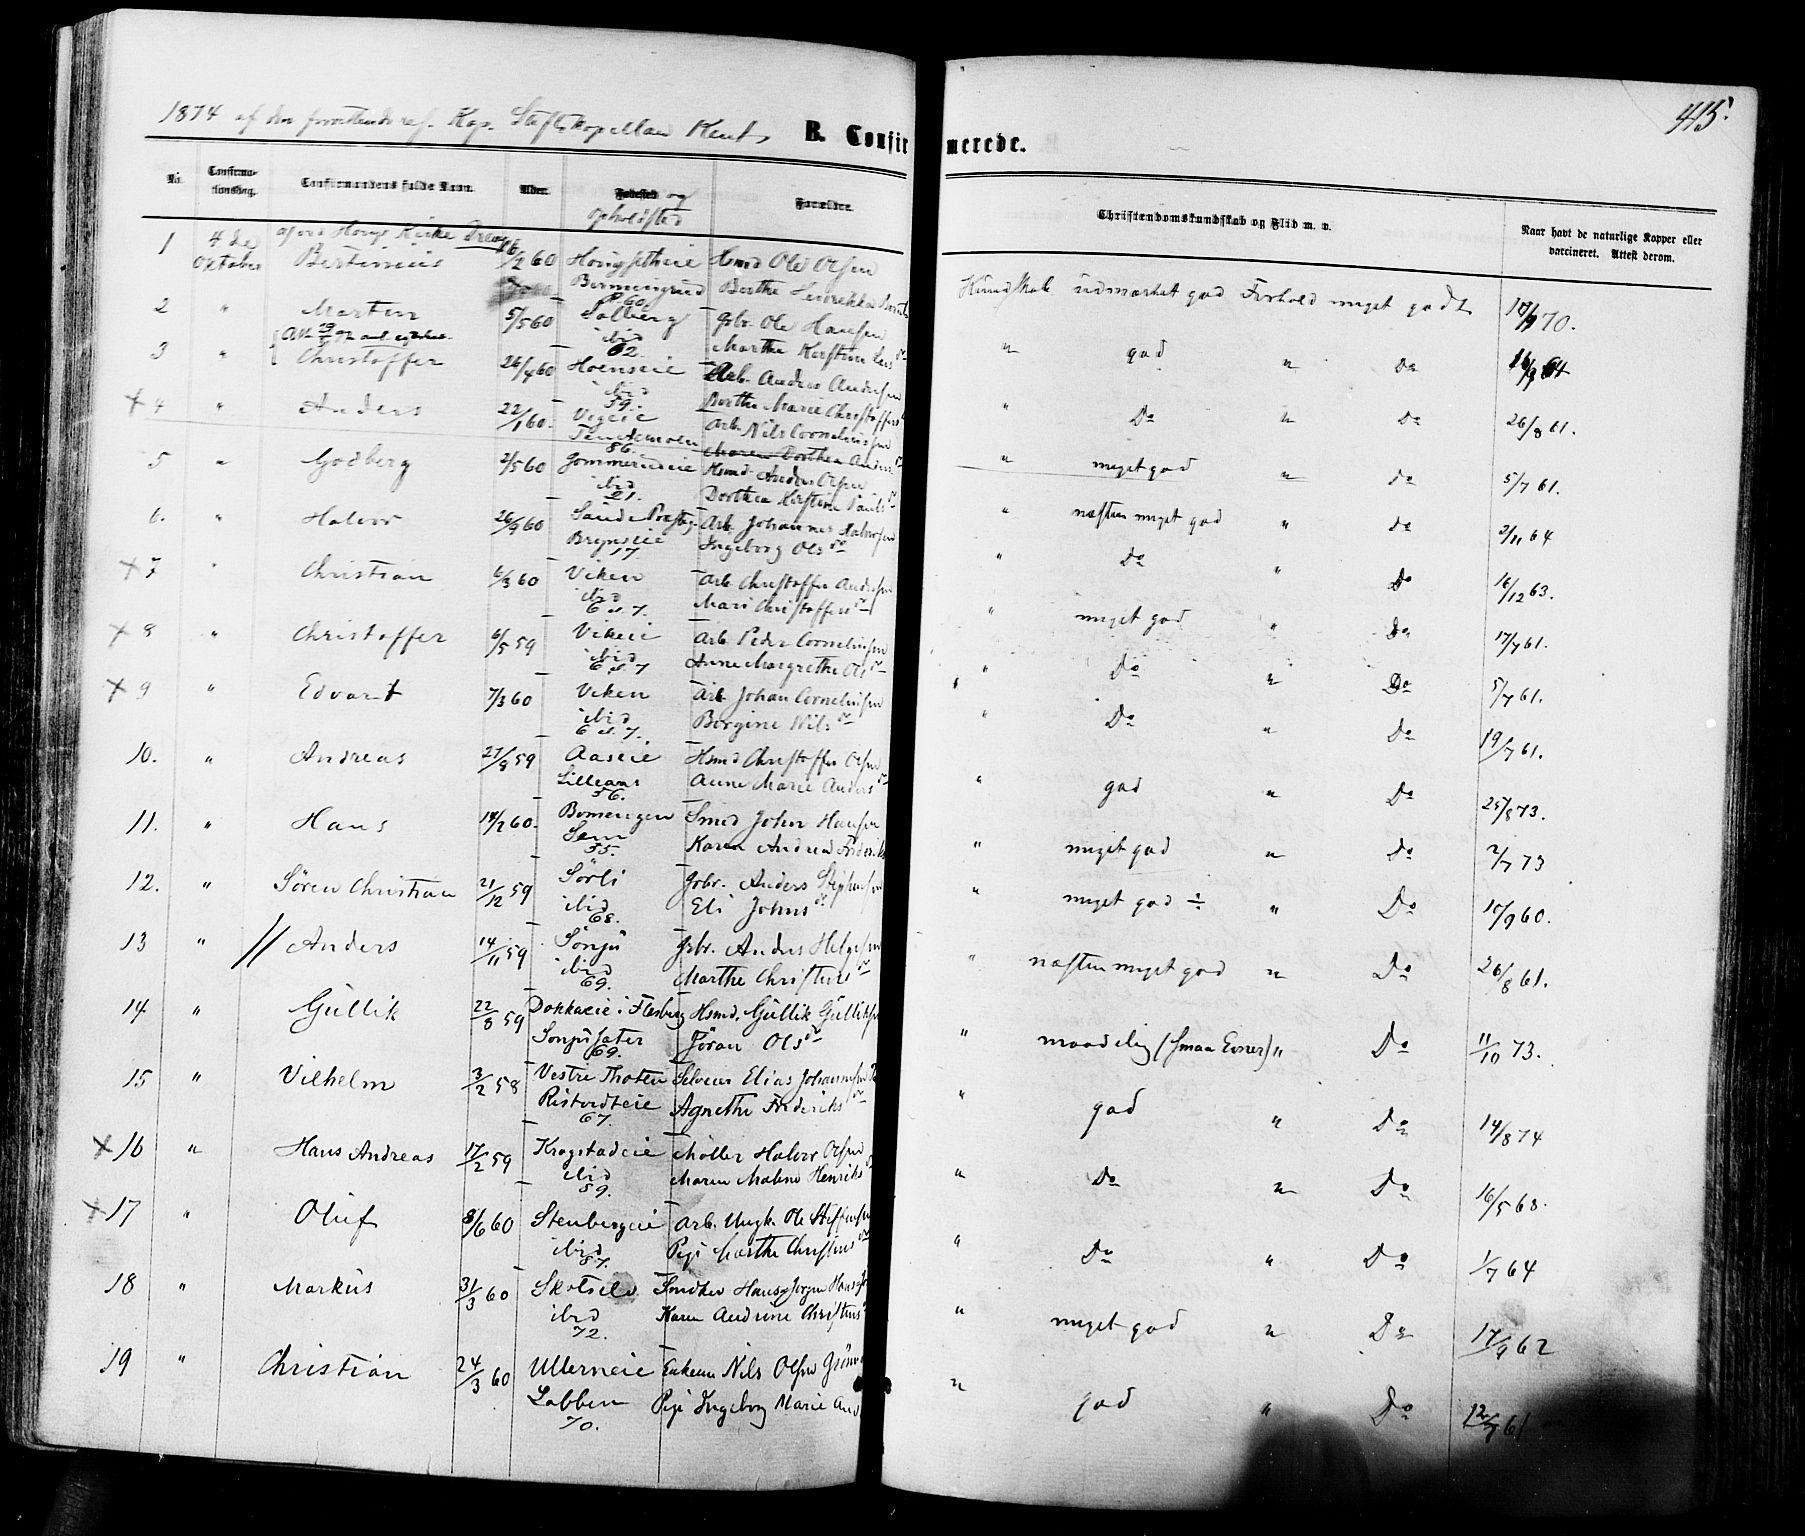 1874 af den Kap. Stiftskapellan
B. Confirmerede.
415.
No. Confirmationsdag. Confirmandens fulde Navn. Alder. Fødested og Opholdsted Forældre. Christendomskundskab og Flid m. v. Naar havt de naturlige Kopper eller vaccineret. Attest derom.
1 4de Oktober Kirke Bertinius 60 Hsmd Ole Olsen Kundskab udmærket god Forhold meget godt 70.
Berthe
2 " Martin 5/5 60 Solberg Gbr. Ole Hansen " god " Do 64
ibid Marthe Kirstine
62.
3 " Christoffer 26/4 60 Hoenseie Arb. Anders Andersen " Do " Do 26/8 61.
ibid Berthe Marie Christoffers
59.
4 " Anders 22/1 60. Vegeie Arb. Nils Corneliussen " meget god " do 5/7 61.
86. Maren Dorthea Anders
5 " Godberg 2/5 60 Gommerudeie Hsmd. Anders Olsen " næsten meget god " do 2/11 64
ibid Dorthea Kirstine Pauls dr
21.
6. " Halvor 26/9 60 Sande Præstg. Arb. Johannes Halvorsen " Do " Do 16/12 63.
Brynseie Ingeborg Ols dr
17
7 " Christian 6/3 60 Viken Arb. Christoffer Andersen " meget god " Do 17/7 61.
ibid Mari Christoffers dr
6 d. 7.
8 " Christoffer 6/5 59 Vikeie Arb. Peder Corneliussen " Do " Do 5/7 61.
ibid Anne Margrethe Ols dr
6 d. 7
9 " Edvart 7/3 60 Viken Arb. Johan Corneliussen " Do " Do 19/7 61.
ibid Borgine Nils dr
6 d. 7.
10. " Andreas 27/8 59 Aaseie Hsmd Christoffer Olsen " god " Do 25/8 73.
Lilleaas Anne Marie Anders dr
56.
11. " Hans 60. Bomengen Smed John Hansen " meget god " Do 2/7 73
Sem Karen Andrea Frederiks
55.
12. " Sören Christian 21/12 59 Sörli Gbr. Anders " meget god ÷ " Do 60.
ibid Eli Johns dr
68.
13 " Anders 14/11 59 Sönju Gbr. Anders Helgesen " næsten meget god " Do 26/8 61.
ibid Marthe Christens dr
69.
14 " Gullik 22/8 59 Dokkaeie i Flesberg Hsmd. Gullik Gulliksen " maadelig (smaa Evner) " Do 11/10 73.
Sönjusæter Jöran Ols dr
69.
15 " Vilhelm 3/2 58 Vestre Thoten Selveier Elias Johannesen " god " Do 14/8 74
Agnethe Frederiks dr
67.
16 " Hans Andreas 17/2 59 Krogstadeie Møller Halvor Olsen " Do " Do 16/5 68.
ibid Maren Malene Henriks
59.
17 " Oluf 8/6 60 Stenbergeie Arb. Ungk. Ole Steffensen " Do " Do 1/7 64
ibid Pige Marthe Christens dr
57.
18 " Markus 31/3 60 Skotselv Snedker Hans Jörgen " meget god " Do 17/9 62
ibid Karen Andrine Christens
72.
19 " Christian 24/3 60 Ullerneie Enkem Nils Olsen " god " Do 12/7 61
Labben Pige Ingeborg Marie
70.